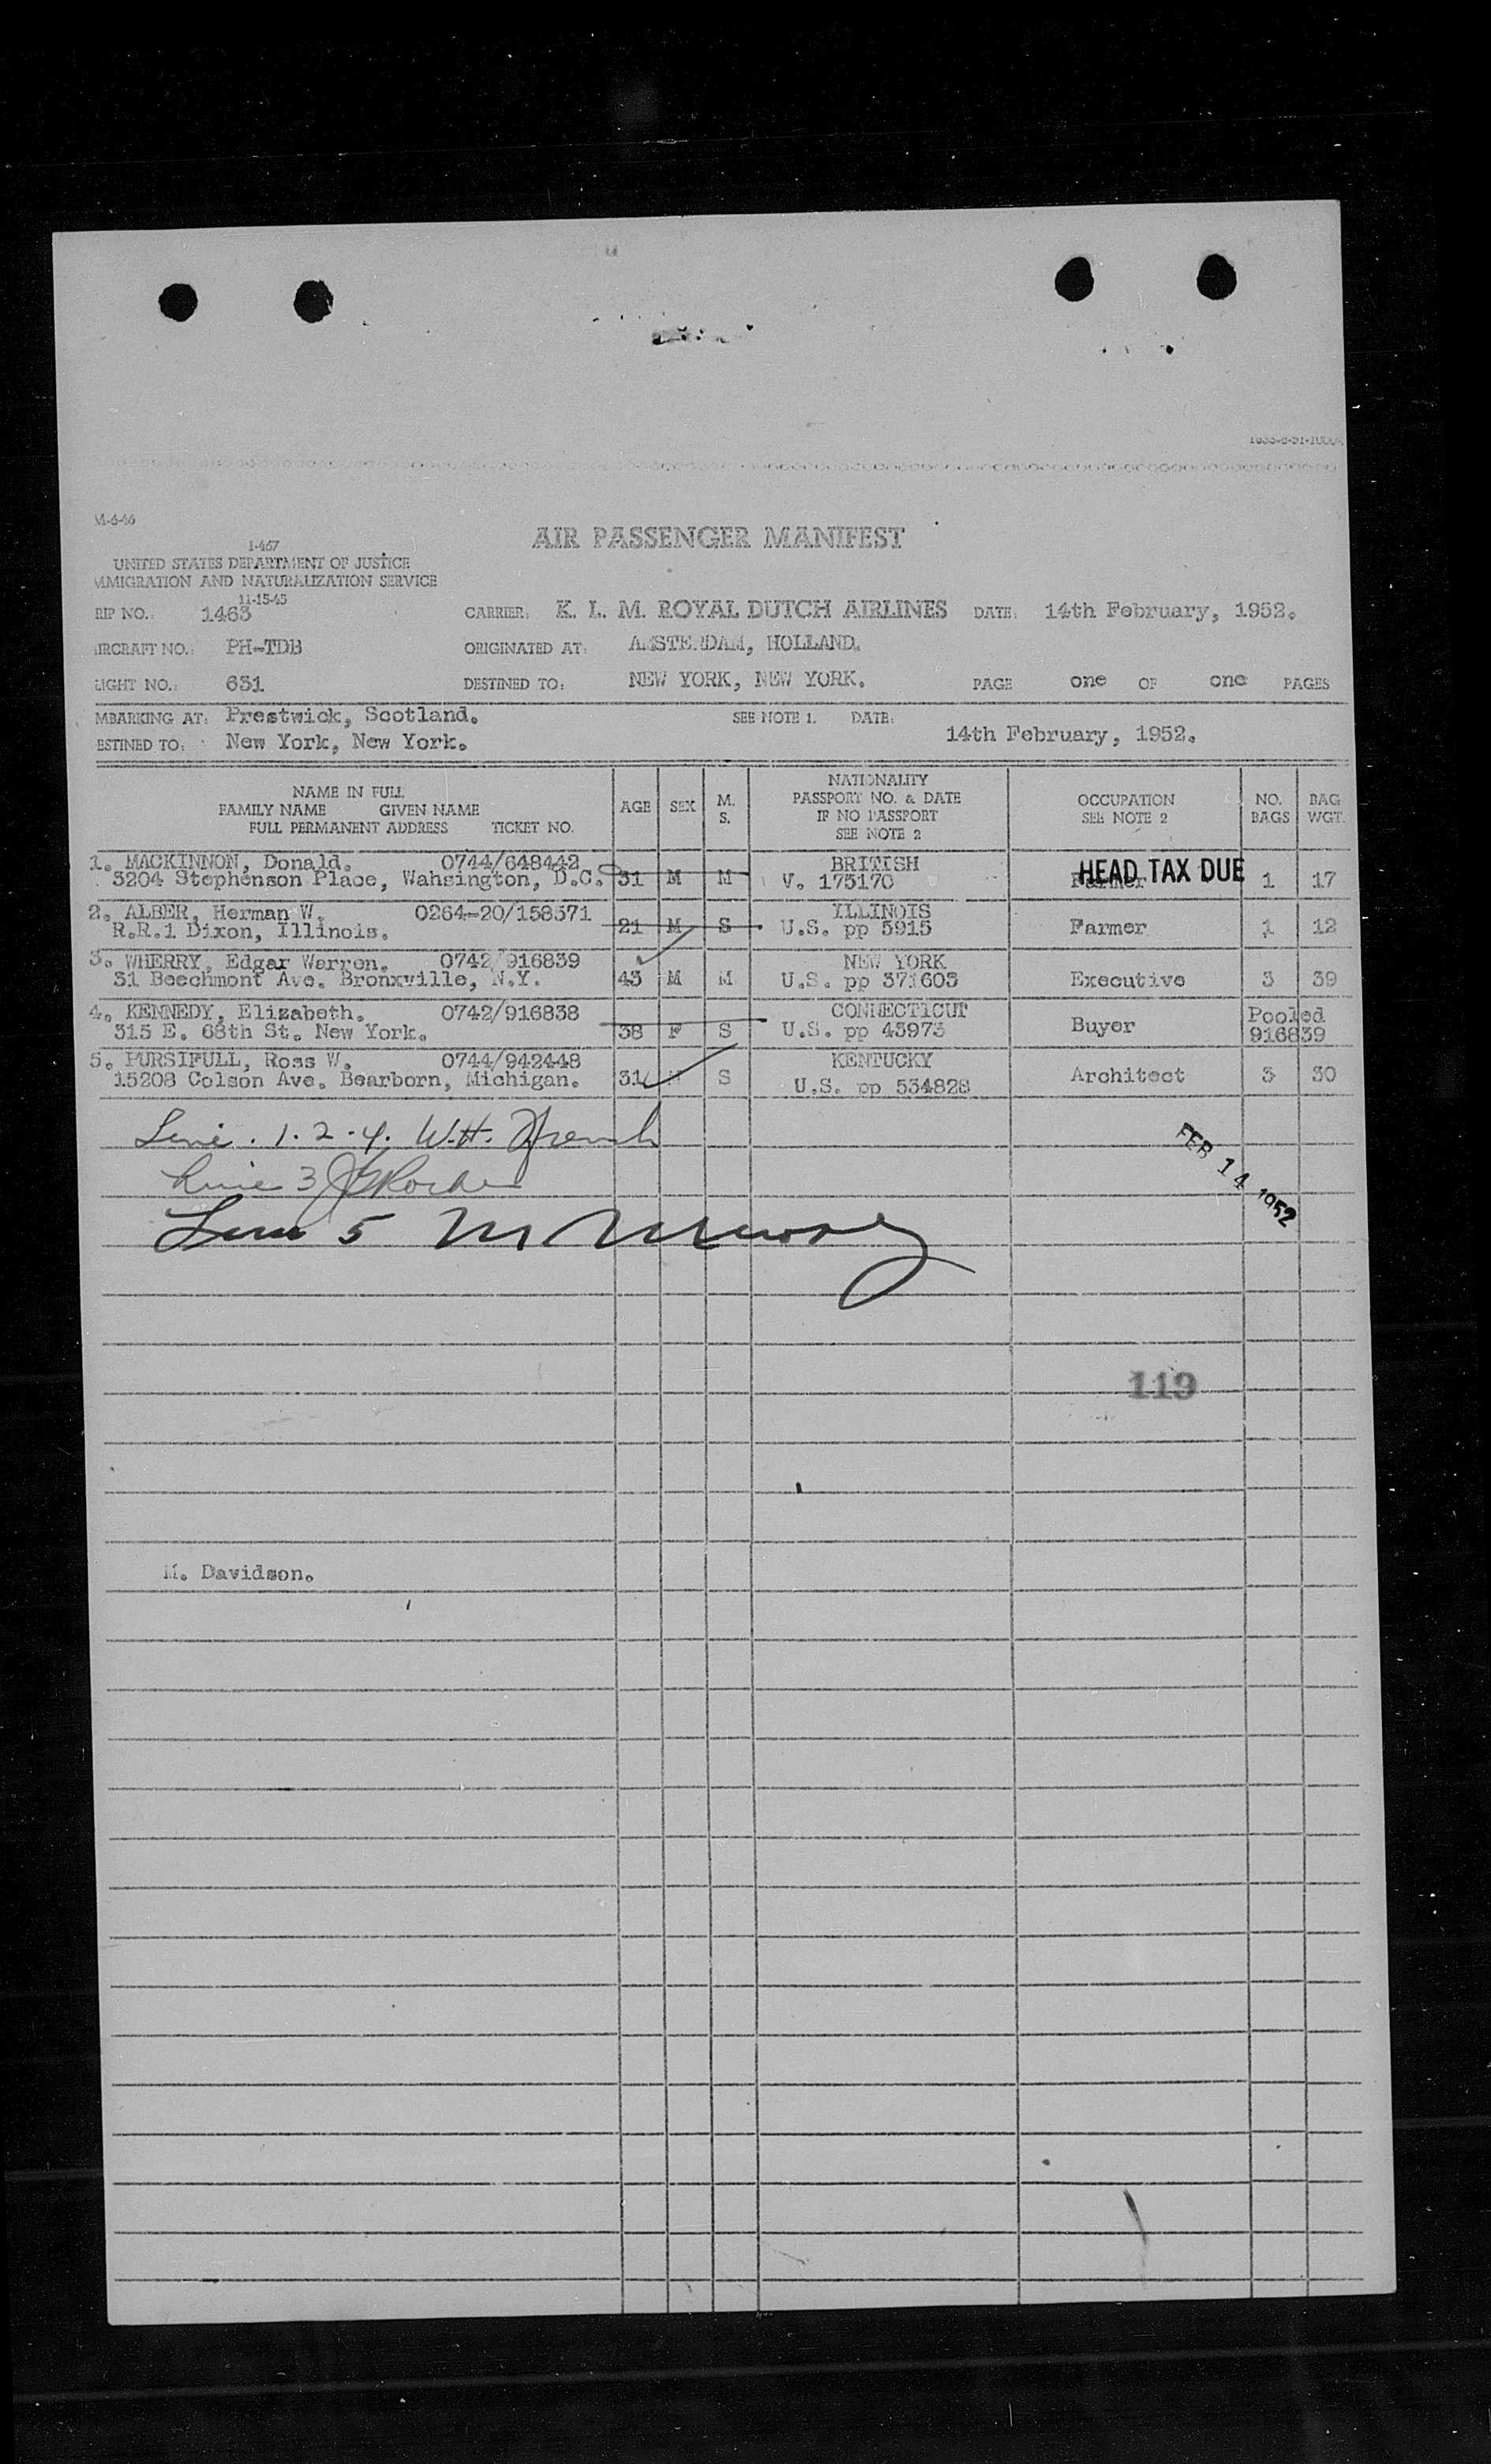 1633-6-51-1000
M-6-46
I-467
AIR PASSENGER MANIFEST
UNITED STATES DEPARTMENT OF JUSTICE
MMIGRATION AND NATURALIZATION SERVICE
11-15-45
RIP NO.: 1463 CARRIER: K. L. M. ROYAL DUTCH AIRLINES DATE: 14th February, 1952.
IRCRAFT NO.: PH-TDB ORIGINATED AT: AMSTERDAM, HOLLAND.
LIGHT NO.: 631 DESTINED TO: NEW YORK, NEW YORK. PAGE one OF one PAGES
MBARKING AT: Prestwick, Scotland. SEE NOTE 1. DATE:
ESTINED TO: New York, New York. 14th February, 1952.
NAME IN FULL
FAMILY NAME GIVEN NAME
FULL PERMANENT ADDRESS TICKET NO.
AGE SEX M. S.
NATIONALITY
PASSPORT NO. & DATE
IF NO PASSPORT
SEE NOTE 2
OCCUPATION
SEE NOTE 2
NO. BAGS
BAG WGT.
1. MACKINNON, Donald. 0744/648442 BRITISH HEAD TAX DUE
5204 Stephenson Place, Wahsington, D.C. 31 M M V. 175170 Farmer 1 17
2. ALBER, Herman W. 0264-20/158571 ILLINOIS
R.R.1 Dixon, Illinois. 21 M S U.S. pp 5915 Farmer 1 12
3. WHERRY, Edgar Warren. 0742/916839 NEW YORK
31 Beechmont Ave. Bronxville, N.Y. 43 M M U.S. pp 371603 Executive 3 39
4. KENNEDY, Elizabeth. 0742/916838 CONNECTICUT Pooled
315 E. 68th St. New York. 38 F S U.S. pp 43973 Buyer 916839
5. PURSIFULL, Ross W. 0744/942448 KENTUCKY
15208 Colson Ave. Bearborn, Michigan. 31 M S U.S. pp 534828 Architect 3 30
Line. 1. 2. 4. W.H. French
Line 3
Line 5 M
FEB 14 1952
119
M. Davidson.